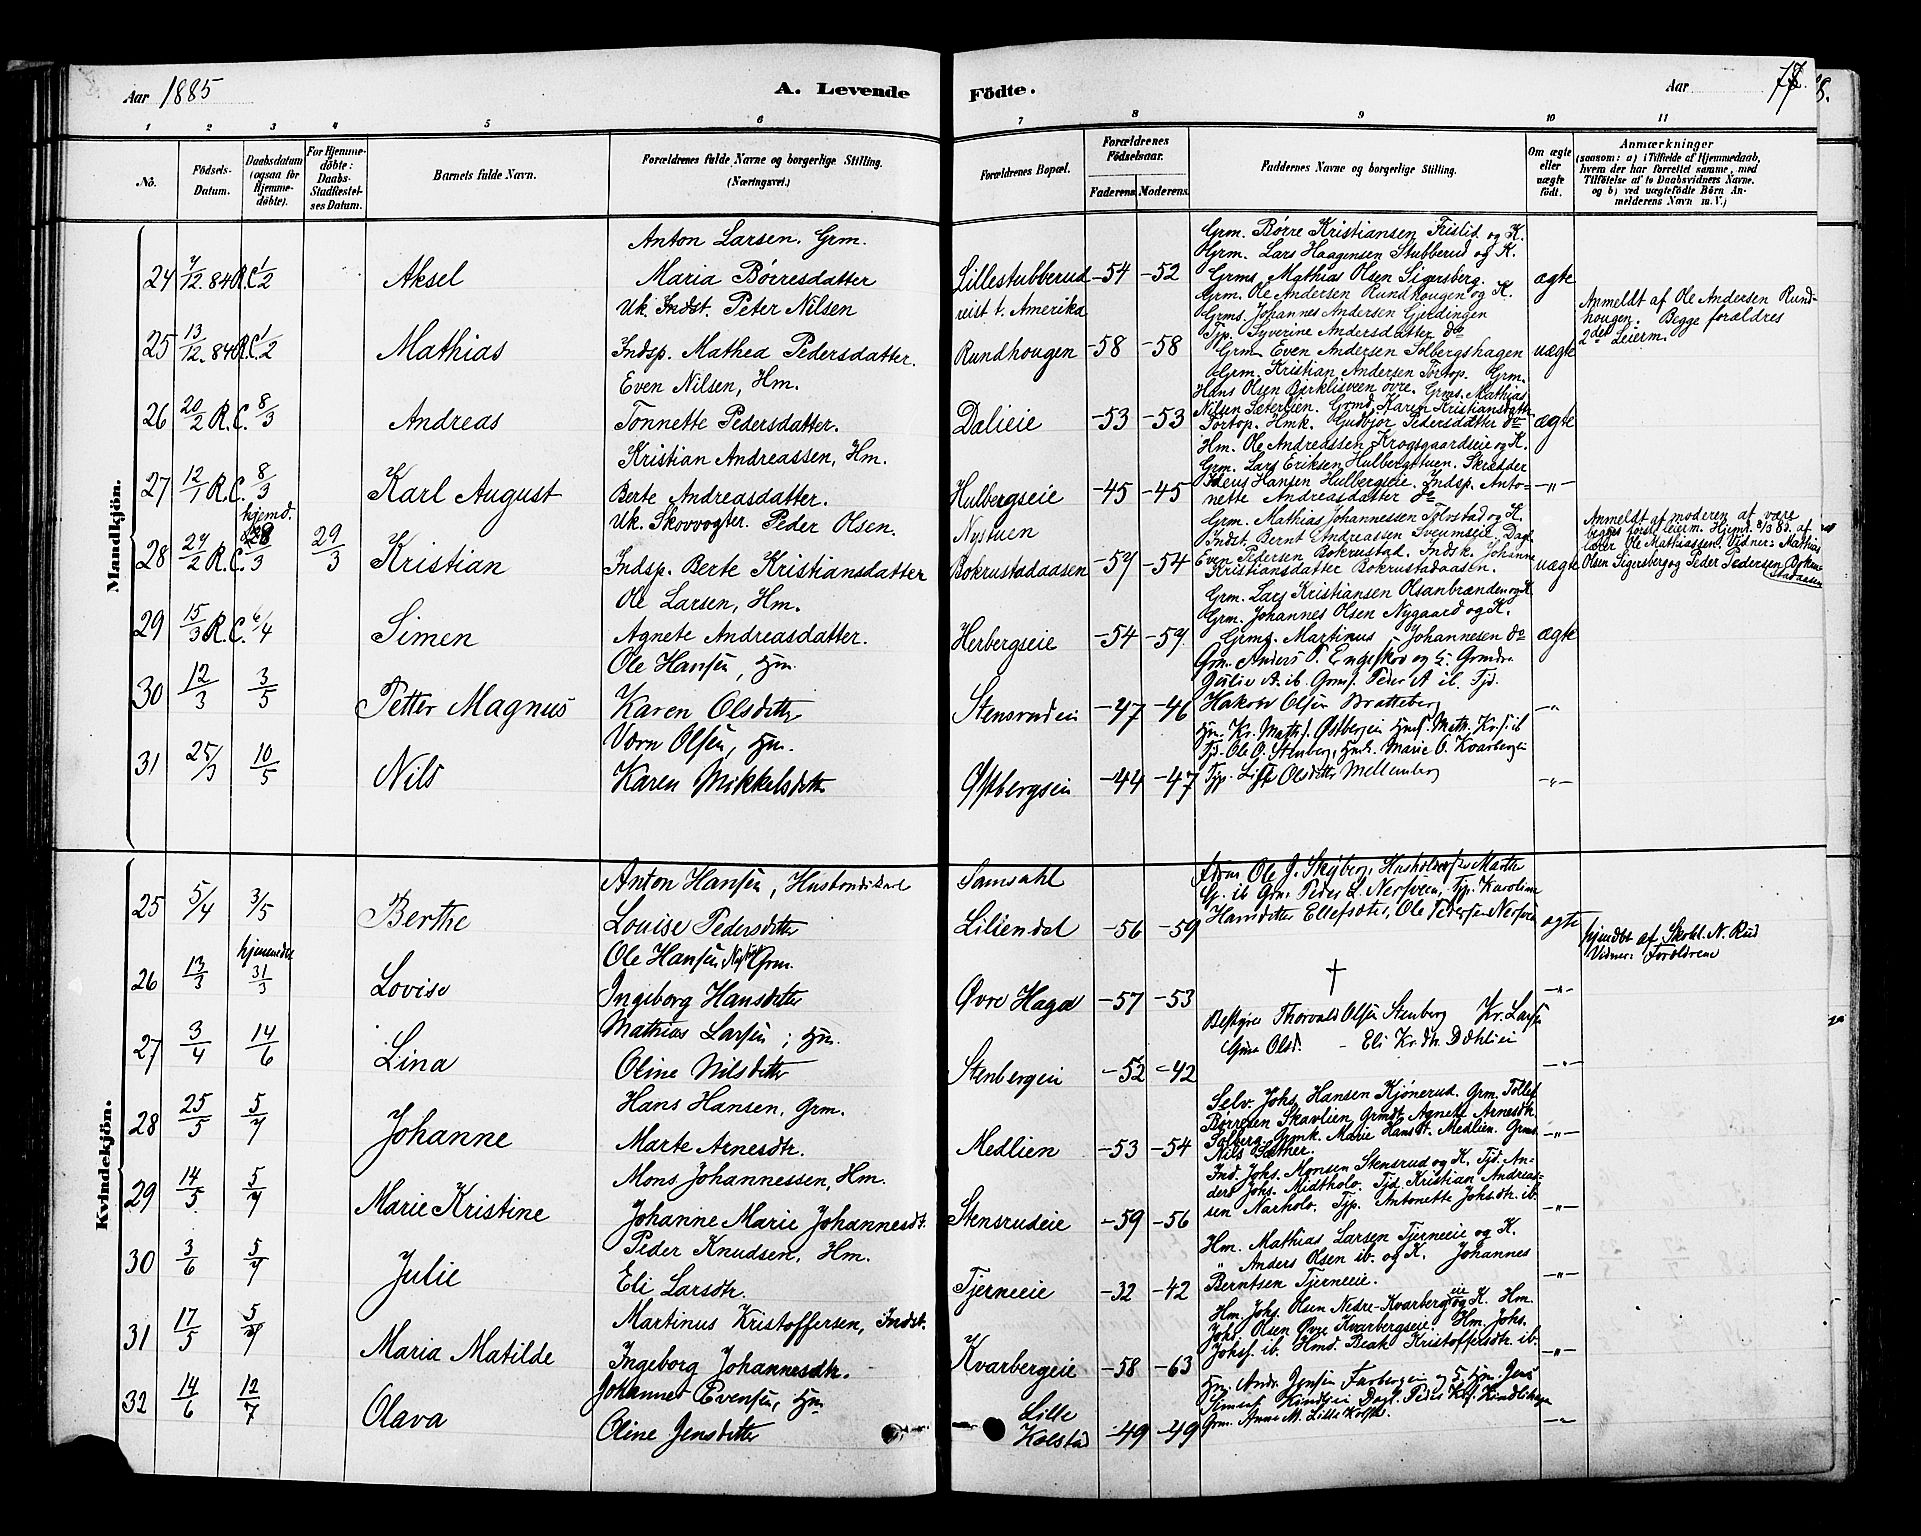 Aar 1885
A. Levende Födte.
Aar 77.
1 2 3 4 5 6 7 8 9 10 11
No.
Födsels-Datum.
Daabsdatum (ogsaa for Hjemme-döbte).
For Hjemme-döbte: Daabs-Stadfæstel-ses Datum.
Barnets fulde Navn.
Forældrenes fulde Navne og borgerlige Stilling. (Næringsvei.)
Forældrenes Bopæl.
Forældrenes Födselsaar.
Faderens. Moderens.
Faddernes Navne og borgerlige Stilling.
Om ægte eller uægte födt.
Anmærkninger
(saasom: a) i Tilfælde af Hjemmedaab, hvem der har forrettet samme, med Tilföielse af to Daabsvidners Navne, og b) ved uægtefödte Börn An-melderens Navn m. V.)
Mandkjön.
24 7/12 84 R.C. 1/2 Aksel
Anton Larsen, Grm.
Maria Börresdatter
Lillestubberud -54 -52
Grm. Börre Kristiansen Frislid og K.
Grm. Lars Haagensen Stubberud og K.
Grms. Mathias Olsen Sigersberg.
ægte
25 13/12 84 R.C. 1/2 Mathias
Uk. Indst. Peter Nilsen
Indsp. Mathea Pedersdatter.
reist t. Amerika
Rundhougen -58 -58
Grm. Ole Andersen Rundhougen og K.
Grms. Johannes Andersen Gjeldingen
Tjp. Syverine Andersdatter do
Grm. Even Andersen Solbergshagen
uægte
Anmeldt af Ole Andersen Rund-
hougen. Begge forældres
2det Leierm.
26 20/2 R.C. 8/3 Andreas
Even Nilsen, Hm.
Tonnette Pedersdatter.
Dalieie -53 -53
Grm. Kristian Andersen Tortop. Grm.
Hans Olsen Birklisveen övre. Grms. Mathias
Nilsen Seterlien. Grmd. Karen Kristiansdattr.
Tortop. Hmk. Gudbjör Pedersdatter do
ægte
27 12/1 R.C. 8/3 Karl August
Kristian Andreassen, Hm.
Berte Andreasdatter.
Hulbergseie -45 -45
Hm. Ole Andreassen Krogsgaardseie og K.
Grm. Lars Eriksen Hulbergstuen. Skrædder
Hansen Hulbergseie. Indsp. Anto-
nette Andreasdatter do
-"-
28 24/2 R.C. hjemd. 8/3 29/3 Kristian
Uk. Skovvogter Peder Olsen.
Indsp. Berte Kristiansdatter
Nystuen
Bokrustadaasen -59 -54
Grm. Mathias Johannessen Tolvstad og K.
Indst. Bernt Andreassen Sveumseie. Dagl.
Even Pedersen Bokrustad. Indsk. Johanne
Kristiansdatter Bokrustadaasen.
uægte
Anmeldt af moderen at være
begges første leierm. Hjemd. 8/3 85 af
lærer Ole Mathiassen. Vidner: Mathias
Olsen Sigersberg og Peder Pedersen Bokru-
stadaasen
29 15/3 R.C. 6/4 Simen
Ole Larsen, Hm.
Agnete Andreasdatter.
Herbergseie -54 -59
Grm. Lars Kristiansen Olsanbrænden og K.
Grm. Johannes Olsen Nygaard og K.
Grms. Martinus Johannesen do
ægte
30 12/3 3/5 Petter Magnus
Ole Hansen, Hm.
Karen Olsdtter
Stensrudei -47 -46
Grm. Anders P. Engeskov og K. Grmdr.
Julie A. ib. Grms. Peder A. ib. Tjd.
Hakon Olsen Bratteberg
-"-
31 25/3 10/5 Nils
Olsen, Hm.
Karen Mikkelsdtter
Østbergsei -44 -47
Hm. Kr. Maths. Østbergei Hms. Math. Kr.s. ib
Tjd. Ole O. Stenberg, Hmk. Marie O. Kvarbergei
Tjp. Lise Olsdtter Mellemberg
-"-
Kvindekjön.
25 5/4 3/5 Berthe
Anton Hansen, Husbondskarl
Louise Pedersdtter
Samsahl
Liliendal -56 -59
Ole J. Skyberg, Marthe
G. ib Grm. Peder L. Nersveen, Tjp. Karoline
Hansdtter Ellefsæter, Ole Pedersen Nersveen
ægte
26 13/3 hjemmedbt 31/3 Lovise
Ole Hansen Grm.
Ingeborg Hansdtter
Øvre Haga -57 -53
†
-"-
hjmdbt af Skolel. N. Rud
Vidner: Forældrene
27 3/4 14/6 Lina
Mathias Larsen, Hm.
Oline Nilsdtter
Stenbergei -52 -42
Bestyrer Thorvald Olsen Stenberg Kr. Larsen
Olsd. - Eli Kr.dtr. Dæhliei
-"-
28 25/5 5/7 Johanne
Hans Hansen, Grm.
Marte Arnesdtr.
Medlien -53 -54
Selv. Johs. Hansen Kjönerud. Grm. Tollef
Börresen Skavlien, Grmdt. Agnete Arnesdtr.
Solberg. Grmk. Marie Hansdt. Medlien. Grms.
Nils Sætner.
-"-
29 14/5 5/7 Marie Kristine
Mons Johannessen, Hm.
Johanne Marie Johannesdt.
Stensrudeie -59 -56
Ind. Johs. Monsen Stensrud og K. Tjd. An-
ders Johs. Midtholo. Tjd. Kristian Andreas-
sen Narholo. Tjp. Antonette Johsdtr. ib.
-"-
30 3/6 5/7 Julie
Peder Knudsen, Hm.
Eli Larsdtr.
Tjerneeie -32 -42
Hm. Mathias Larsen Tjerneeie og K.
" Anders Olsen ib. og K. Johannes
Berntsen Tjerneeie.
-"-
31 17/5 5/7 Maria Matilde
Martinus Kristoffersen, Indst.
Ingeborg Johannesdtr.
Kvarbergeie -58 -63
Hm. Johs. Olsen Nedre-Kvarbergeie og K. Hm.
Johs. Olsen Øvre Kvarbergseie. Hm. Johs.
Johss. ib. Hmd. Beate Kristoffersdtr. ib.
-"-
32 14/6 12/7 Olava
Johannes Evensen, Hm
Oline Jensdtter
Lille
Kolstad -49 -49
Hm. Andr. Jensen Farbergei og K. Hm. Jens
Simens. Kindlien Dagl. Peder Kr.s. Kindlihagen
Grm. Anne M. Lille Kolstd.
-"-